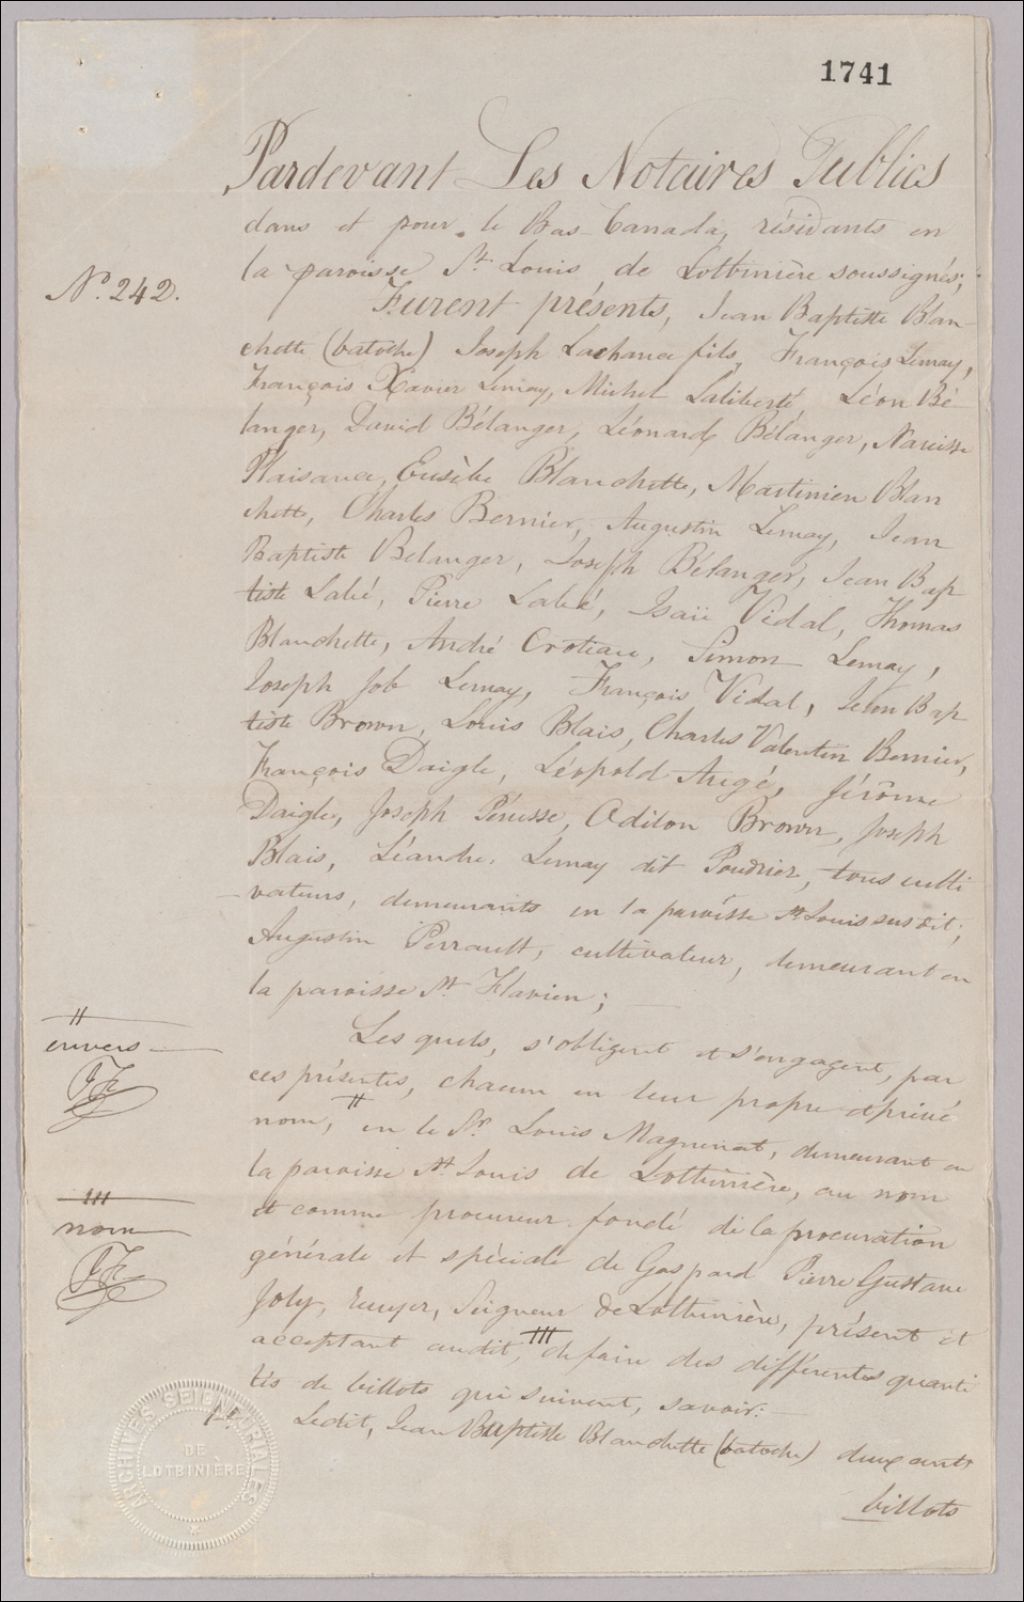 1741
Pardevant Les Notaires Publics
dans et pour le Bas-Canada, résidants en
la paroisse St. Louis de Lotbinière soussignés;
No. 242.
Furent présents, Jean Baptiste Blan-
chette (batoche) Joseph Lachance fils, François Lemay,
François Xavier Lemay, Michel Laliberté, Léon Bé-
langer, David Bélanger, Léonard Bélanger, Narcisse
Plaisance, Eusèbe Blanchette, Martinien Blan
chette, Charles Bernier, Augustin Lemay, Jean
Baptiste Belanger, Joseph Bélanger, Jean Bap
tiste Labé, Pierre Labé, Isaïe Vidal, Thomas
Blanchette, André Croteau, Simon Lemay,
Joseph Job Lemay, François Vidal, Jean Bap
tiste Brown, Louis Blais, Charles Valentin Bernier,
François Daigle, Léopold Augé, Jérôme
Daigle, Joseph Pérusse, Odilon Brown, Joseph
Blais, Léandre Lemay dit Poudrier, tous culti
vateurs, demeurants en la paroisse St. Louis susdit;
Augustin Perrault, cultivateur, demeurant en
la paroisse St. Flavien;
Les quels, s'obligent et s'engagent, par
envers
ces présentes, chacun en leur propre et privé
nom, en le Sr. Louis Magnenat, demeurant en
la paroisse St. Louis de Lotbinière, au nom
et comme procureur fondé de la procuration
nom
générale et spéciale de Gaspard Pierre Gustave
Joly, Ecuyer, Seigneur de Lotbinière, présent et
acceptant audit, de faire des différentes quanti
tés de billots qui suivent, savoir:
Ledit, Jean Baptiste Blanchette (batoche) deux cents
billots
ARCHIVES SEIGNEURIALES
DE
LOTBINIÈRE